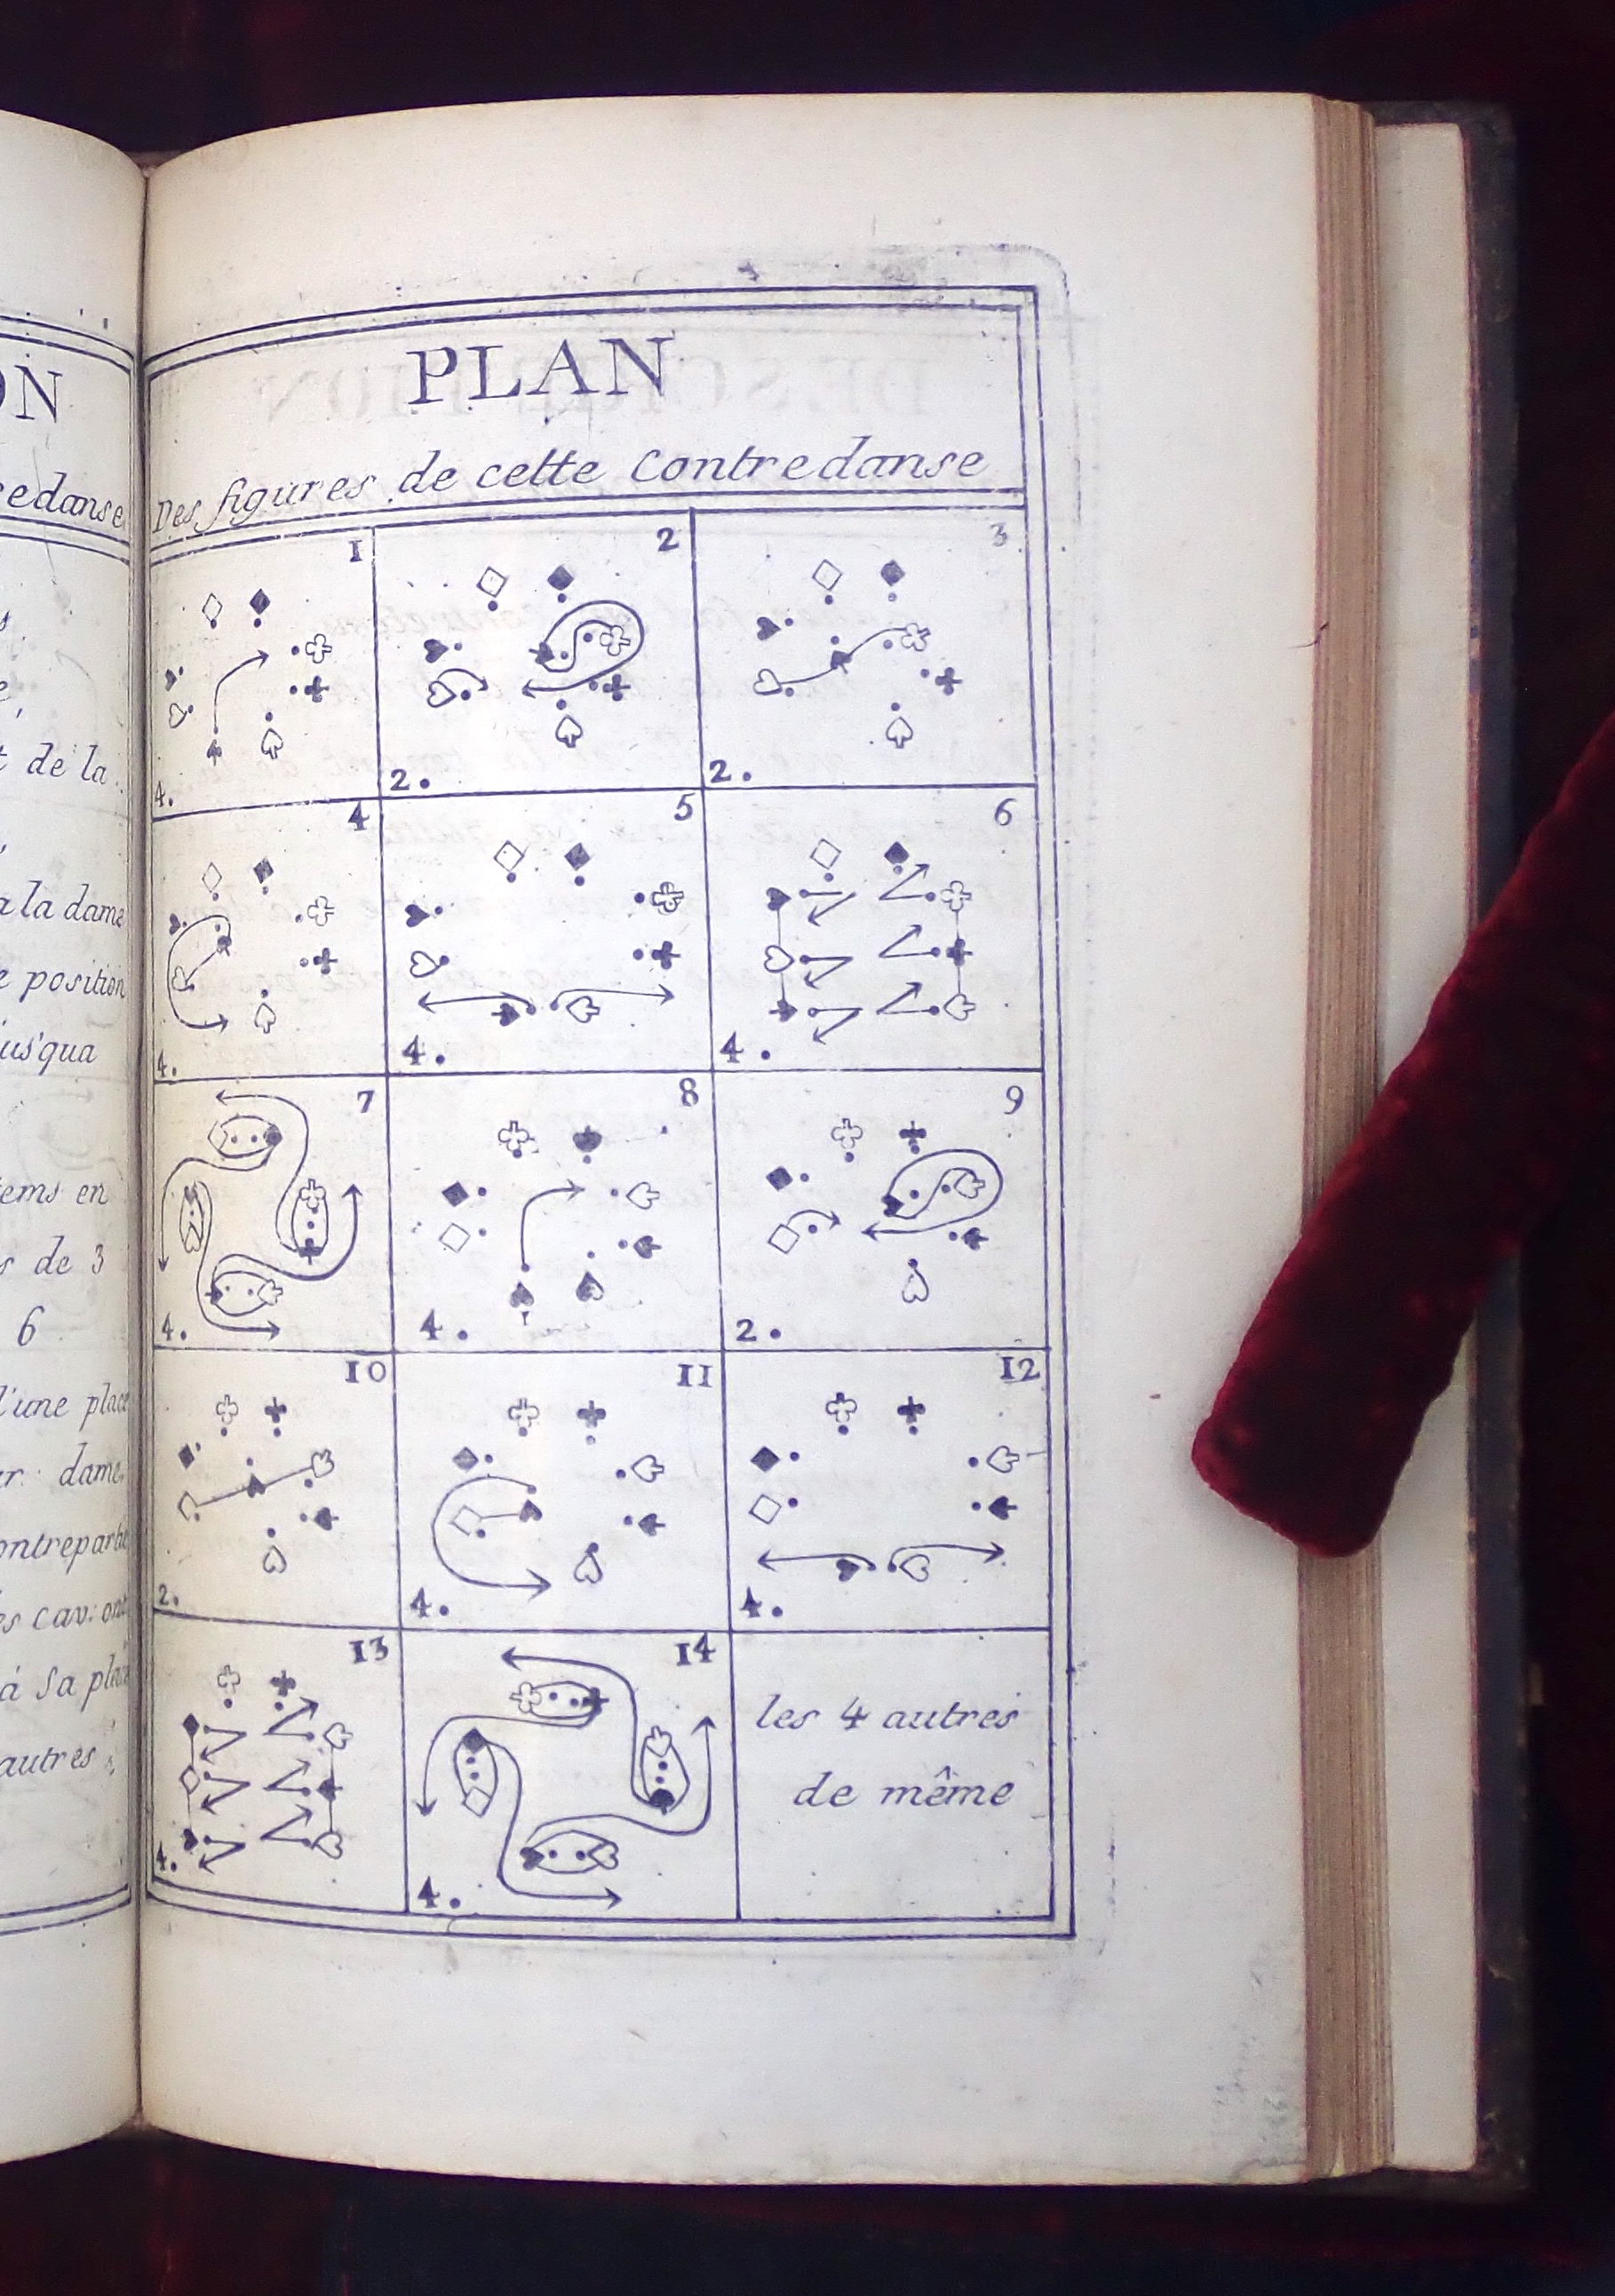 ON
PLAN
Des figures de cette Contredanse
1
2
3
4.
2.
2.
4
5
6
4.
4.
4.
7
8
9
4.
4.
2.
10
11
12
2.
4.
4.
13
14
les 4 autres
de même
4.
4.
de la
a la dame
position
jus'qua
en
de 3
6
l'une place
dame
contrepartie
cav: ont
à sa place
autres